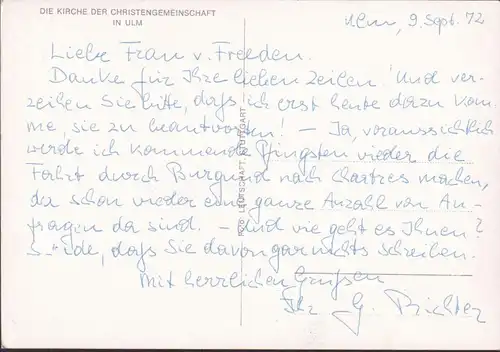 DIE KIRCHE DER CHRISTENGEMEINSCHAFT
IN ULM
Ulm, 9. Sept. 72
Liebe Frau v. Freeden.
Danke für Ihre lieben Zeilen! Und ver-
zeihen Sie bitte, daß ich erst heute dazu kom-
me, sie zu beantworten! – Ja, voraussichtlich
werde ich kommende Pfingsten wieder die
Fahrt durch Burgund nach Chartres machen,
da schon wieder eine ganze Anzahl von An-
fragen da sind. – Und wie geht es Ihnen?
daß Sie davon gar nichts schreiben.
Mit herzlichen Grüßen
Ihr G. Richter
FOTO LEUTSCHAFT STUTTGART